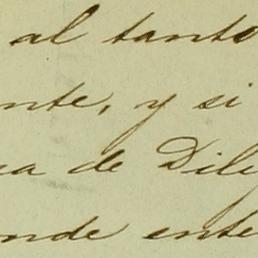 al tanto
nte, y si
a de Dili
nde ente